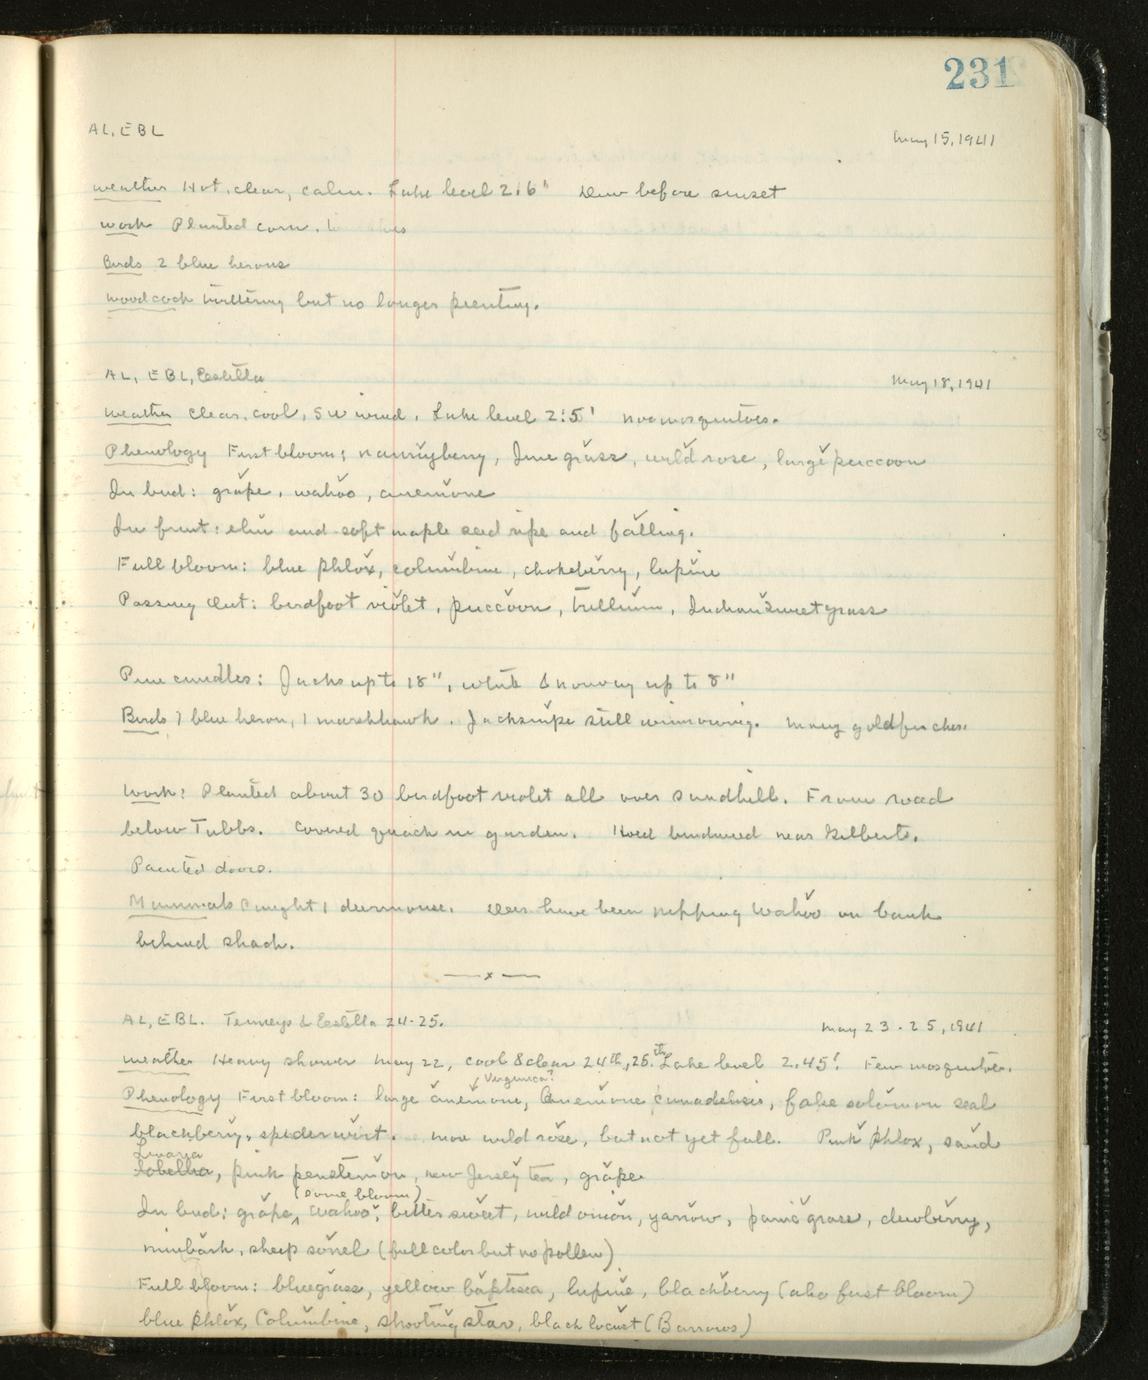 231
AL, EBL May 15, 1941
Weather Hot, clear, calm. Lake level 2.6' Dew before sunset
Work Planted corn.
Birds 2 blue herons
Woodcock twittering but no longer peenting.
AL, EBL, Estella May 18, 1941
Weather Clear, cool, SW wind. Lake level 2.5' No mosquitoes.
Phenology First bloom: nannyberry, June grass, wild rose, large puccoon
In bud: grape, wahoo, anemone
In fruit: elm and soft maple seed ripe and falling.
Full bloom: blue phlox, columbine, chokeberry, lupine
Passing Out: birdfoot violet, puccoon, trillium, Indian sweetgrass
Pine candles: Jacks up to 18", white & norway up to 8"
Birds 7 blue heron, 1 marshhawk. Jacksnipe still winnowing. Many goldfinches.
Work: Planted about 30 birdfoot violet all over sandhill. From road
below Tubbs. Covered quack in garden. Hoed bindweed near Gilberts.
Painted doors.
Mammals Caught 1 deermouse. Deer have been nipping wahoo on bank
behind shack.
—x—
AL, EBL. Temeys & Estella 24-25. May 23-25, 1941
Weather Heavy shower May 22, cool & clear 24th, 25th. Lake level 2.45! Few mosquitoes.
Virginica?
Phenology First bloom: large anemone, Anemone canadensis, false solomon seal
blackberry, spiderwort. more wild rose, but not yet full. Pink phlox, sand
Linaria
lobelia, pink penstemon, new Jersey tea, grape
(some bloom)
In bud: grape, wahoo, bittersweet, wild onion, yarrow, panic grass, dewberry,
ninebark, sheep sorrel (full color but no pollen)
Full bloom: bluegrass, yellow baptisia, lupine, blackberry (also first bloom)
blue phlox, Columbine, shooting star, black locust (Barrows)